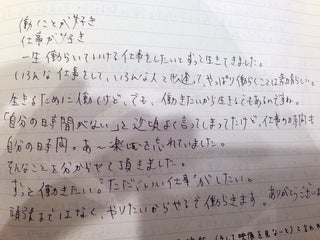 働くことが好き
仕事が好き
一生働らいていける仕事をしたいとずっと生きてきました。
いろんな仕事をして、いろんな人と出逢って、やっぱり働らくことは素晴らしい。
生きるために働くけど、でも、働きたいから生きるでもあるですね。
「自分の時間がない」と近頃よく言ってしまってたけど、仕事の時間も
自分の時間。あ〜楽しさを忘れていました。
そんなことを分からせて頂きました。
ずっと働きたい。ただ、いい仕事がしたい。
頑張るではなく、やりたいからやるで働らきます。ありがとうござい
て映像を見ないと